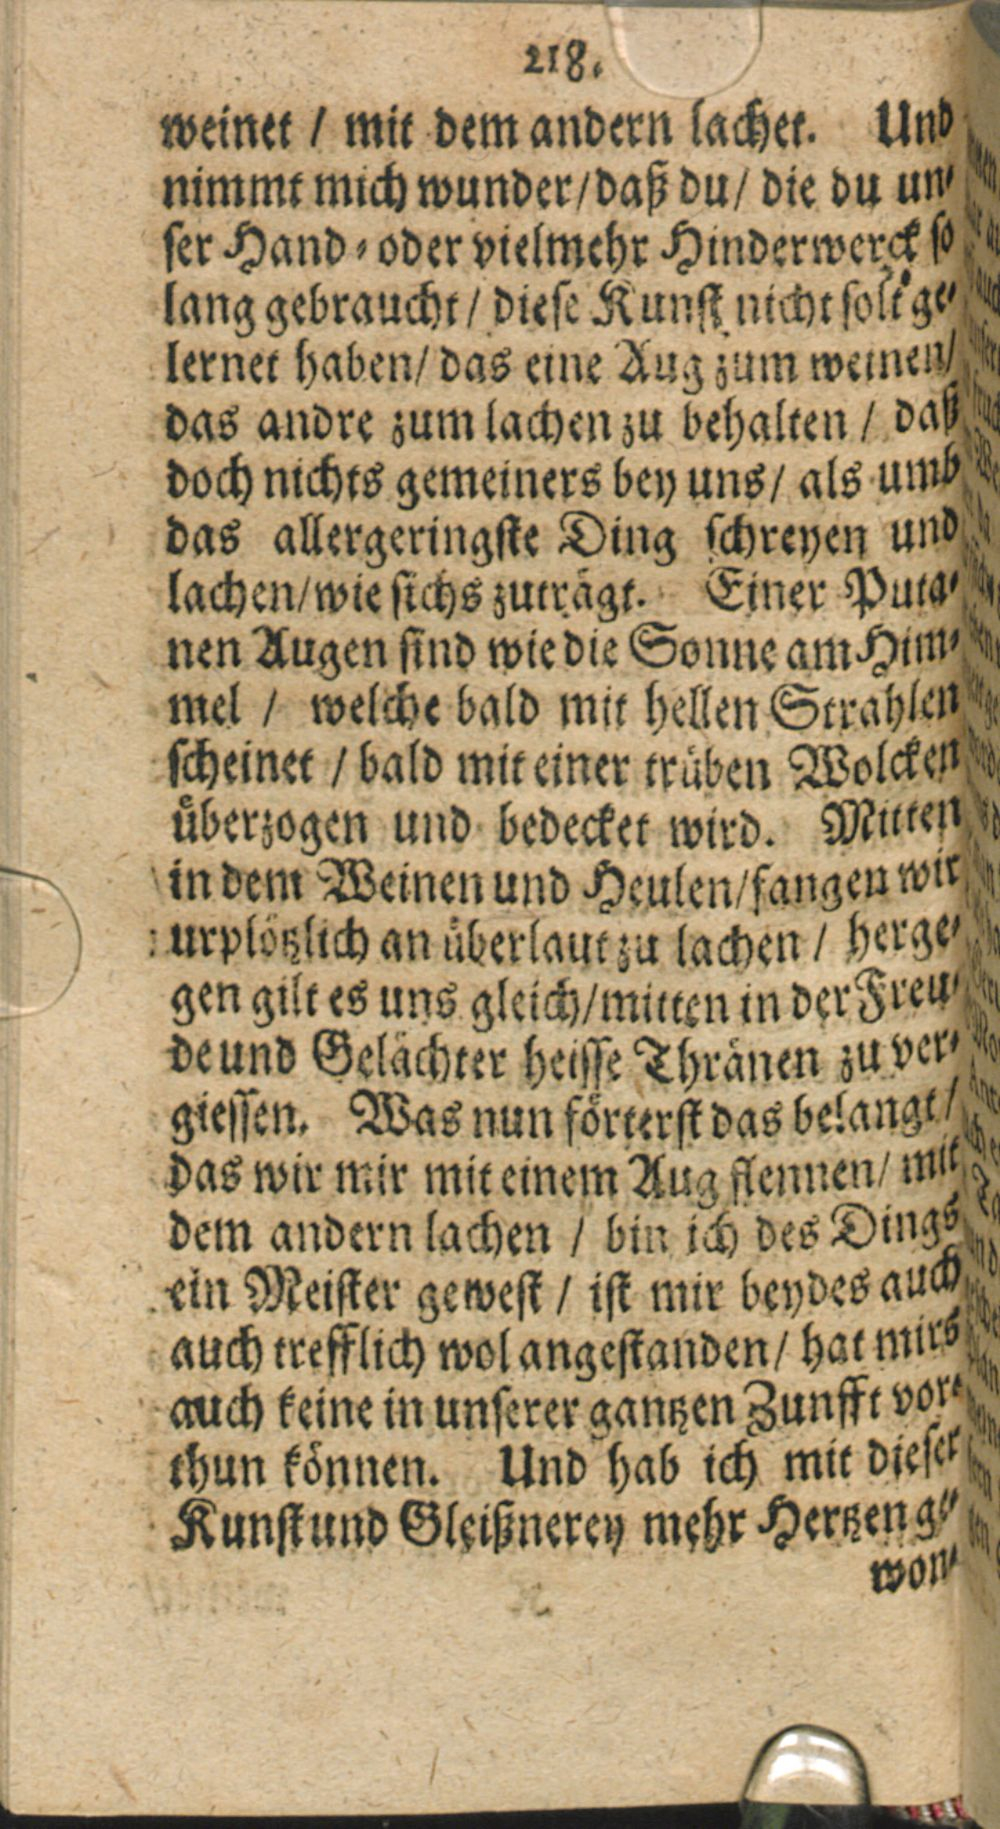 218.
weinet / mit dem andern lachet. Und
nimmt mich wunder / daß du / die du un-
ser Hand - oder vielmehr Hinderwerck so
lang gebraucht / diese Kunst nicht solt ge-
lernet haben / das eine Aug zum weinen /
das andre zum lachen zu behalten / daß
doch nichts gemeiners bey uns / als umb
das allergeringste Ding schreyen und
lachen / wie sichs zuträgt. Einer Puta-
nen Augen sind wie die Sonne am Him-
mel / welche bald mit hellen Strahlen
scheinet / bald mit einer trüben Wolcken
überzogen und bedecket wird. Mitten
in dem Weinen und Heulen / fangen wir
urplötzlich an überlaut zu lachen / herge-
gen gilt es uns gleich / mitten in der Freu-
de und Gelächter heisse Thränen zu ver-
giessen. Was nun förterst das belangt /
das wir mir mit einem Aug flennen / mit
dem andern lachen / bin ich des Dings
ein Meister gewest / ist mir beydes auch
auch trefflich wol angestanden / hat mirs
auch keine in unserer gantzen Zunfft vor-
thun können. Und hab ich mit dieser
Kunst und Gleißnerey mehr Hertzen ge-
won-